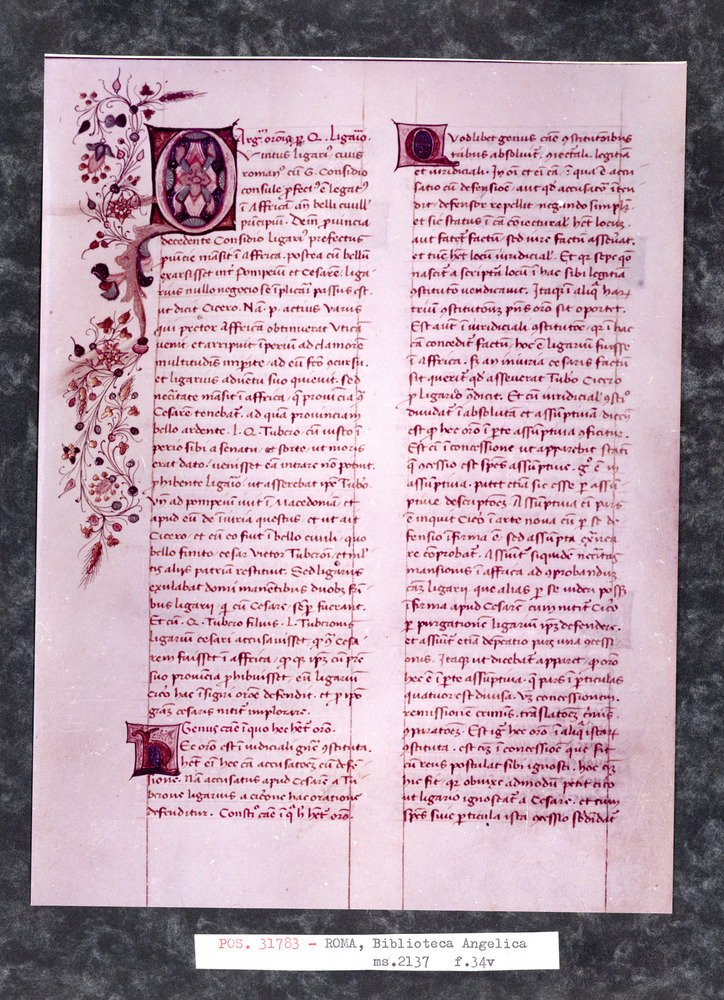 Argm orõis p Q. Ligaio.
Vintus ligari cuius
roman cũ G. Considio
consule pfect e legat
ĩ Affricã añ belli ciuil
principiũ. Dem puincia
decedente Considio ligari prefectus
puĩcie mãsit ĩ affrica. postea cũ bellũ
exarsisset int pompeiũ et Cesarẽ. liga
rius nullo negocio se ĩplicari passus est.
ut dicit Cicero. Nã. p. actius Varus
qui pretor affricã obtinuerat Uticã
uenit et arripuit ĩperiũ ad clamorẽ
multitudĩs ad eũ fcõ cõcursu.
et ligarius aduẽtu suo quieuit. sed
necitate mãsit ĩ affrica. q prouĩcia
Cesarẽ tenebat. ad quã prouinciam
bello ardente. L. Q. Tubero. cũ iusto ĩ
perio sibi a senatu. et sorte. ut moris
erat dato. uenisset eã intrare nõ potuit.
phibente ligaio. ut asserebat ipe Tubo
Vñ ad pompeiũ iuit ĩ Macedoniã. et
apud eũ de iniuria questus. et ut ait
Cicero. et cũ eo fuit ĩ bello ciuili. quo
bello finito. cesar uictor Tuberoñ. et ml
tis alijs patriã restituit. Sed ligarius
exulabat domi manẽtibus duobz frĩ
bus ligarij q cũ Cesare sep fuerant.
Et cũ. Q. Tubero filius. L. Tuberonis
ligariũ cesari accusauisset. Cesa
rem fuisset ĩ affrica. ipz cũ pre
suo prouĩcia phibuisset. eũ ligariũ
cico hac ĩsigni orõe defendit. et p ipo
grãz cesaris nitit implorare.
Genus cãe ĩ quo hec het orõ.
HEc orõ est ĩ iudiciali gñe cõstituta.
het eĩ hec cã accusatoẽz cũ defẽ
sione. Nã accusatus apud Cesarẽ a Tu
berone ligarius a cicõne hac oratione
defenditur. Consti cãe ĩ q h het orõ.
Quodlibet genus cãe cõstitutiõibus
tribus absoluit. cõiectali. legitia
et iuridiciali. In oĩ eĩ cã. ĩ qua e accu
satio cũ defensiõe. aut qd accusatio ĩten
dit. defensor repellit negando simplz.
et sic status ĩ cã coiecturalz het locũz.
aut fatet factũ. sed iure factũ asseuat.
et tũc het locũ iuridicial. Et qz sepe qo
nascit a scripta locũ ĩ hac sibi legitia
cõstitutio uendicauit. Itaqz ĩ aliq har
triũ cõstitutionũ pñs orõ sit oportet.
Est aut ĩ iuridiciali cõstitutõe. qz ĩ hac
cã concedit factũ. hoc e ligariũ fuisse
ĩ affrica. sz an iniuria cesaris factũ
sit querit qd asseuerat Tubo. Cicero
p ligario cõdicit. Et cũ iuridicial
diuidat ĩ absolutã et assũptiuã. dicẽ
est qz hec orõ ĩ pte assũptiua cõficitur.
Est eĩ ĩ concessione ut apparebit statĩ
q cõcessio est spẽs assũptiue. gº e ĩ
assũptiua. patet etiã sic esse p assũ
ptiue descriptoẽz. Assũptiua eĩ pars
e inquit Cico ĩ arte noua cũ p se de
fensio ĩfirma e. sed assũpta extrica
re cõprobat. Assuit siquide necitas
mansionis ĩ affrica ad cõprobandũz
cãz ligarij. que alias p se uideri possz
ĩfirma apud Cesarẽ. cum nitit Cico
p purgatione ligariũ ipz defendere.
et assũit etiã depcatio pars una cõcessi
onis. Itaqz ut dicebat apparet. qz orõ
hec e ĩ pte assũptiua. q pars ĩ pticulas
quatuor est diuisa. Vz concessionem.
remissionẽ crimis. traslatoẽz crimis.
cõparatoẽz. Est ig hec orõ ĩ aliq istaz
cõstituta. est eĩz ĩ concessiõe que fit
cũ reus postulat sibi ignosci. hoc eĩz
hic fit. qz obnixe admodũ petit cico
ut ligario ignoscat a Cesare. et cum
spẽs siue pticula ista cõcessio scdidat
POS. 31783 - ROMA, Biblioteca Angelica
ms.2137 f.34v